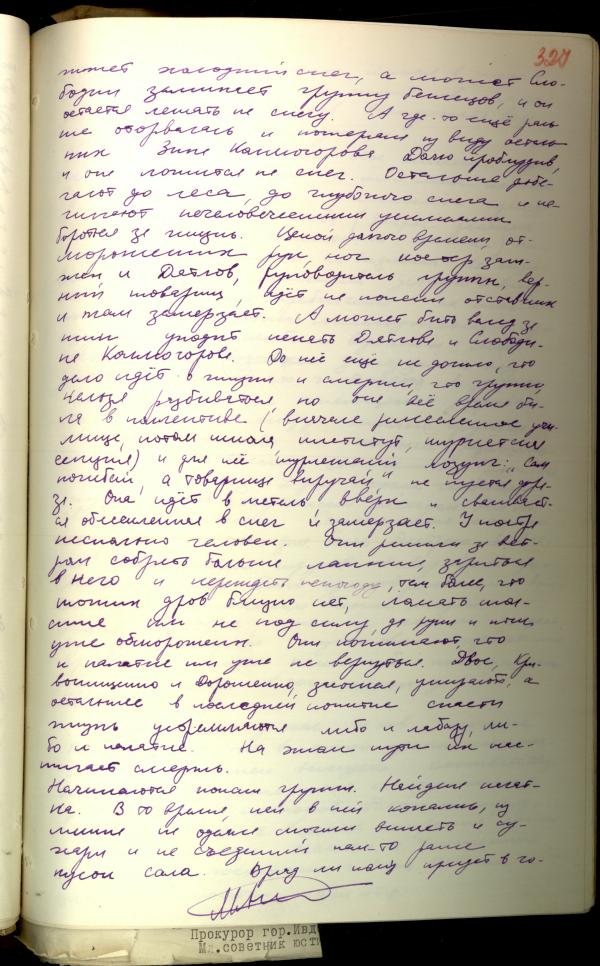 327
может холодный снег, а может Сло-
бодин замыкает группу беглецов, и он
остается лежать на снегу. А где-то ещё рань-
ше оторвалась и потеряла из виду осталь-
ных Зина Колмогорова. Долго проблуждав,
и она ложится на снег. Остальные добе-
гают до леса, до глубокого снега и на-
чинают нечеловеческими усилиями
бороться за жизнь. Ценой долгого времени, от-
мороженных рук, ног костер заж-
жен и Дятлов, руководитель группы, вер-
ный товарищ, идёт на поиски отставших
и там замерзает. А может быть вслед за
ним уходит искать Дятлова и Слободи-
на Колмогорова. До неё ещё не дошло, что
дело идёт о жизни и смерти, что группу
нельзя разбиваться но она всё время бы-
ла в коллективе (вначале ремесленное учи-
лище, потом школа, институт, туристская
секция) и для неё туристский лозунг: „Сам
погибай, а товарища выручай" не пустая фра-
за. Она идёт в метель вверх и сваливает-
ся обессиленная в снег и замерзает. У костра
несколько человек. Они решили за кед-
ром собрать больше лапника, зарыться
в него и переждать непогоду, тем более, что
тонких дров близко нет, ломать тол-
стые им не под силу, да руки и ноги
уже обморожены. Они понимают, что
к палатке им уже не вернуться. Двое, Кри-
вонищенко и Дорошенко, замерзая, умирают, а
остальные в последней попытке спасти
жизнь устремляются либо к лабазу, ли-
бо к палатке. На этом пути их нас-
тигает смерть.
Начинаются поиски группы. Найдена палат-
ка. В то время, как в ней копались, из
лыжи не одаля могли выпасть и су-
хари и не съеденный кем-то ранее
кусок сала. Вряд ли кому придет в го-
Прокурор гор.Ивд
Мл.советник юсти